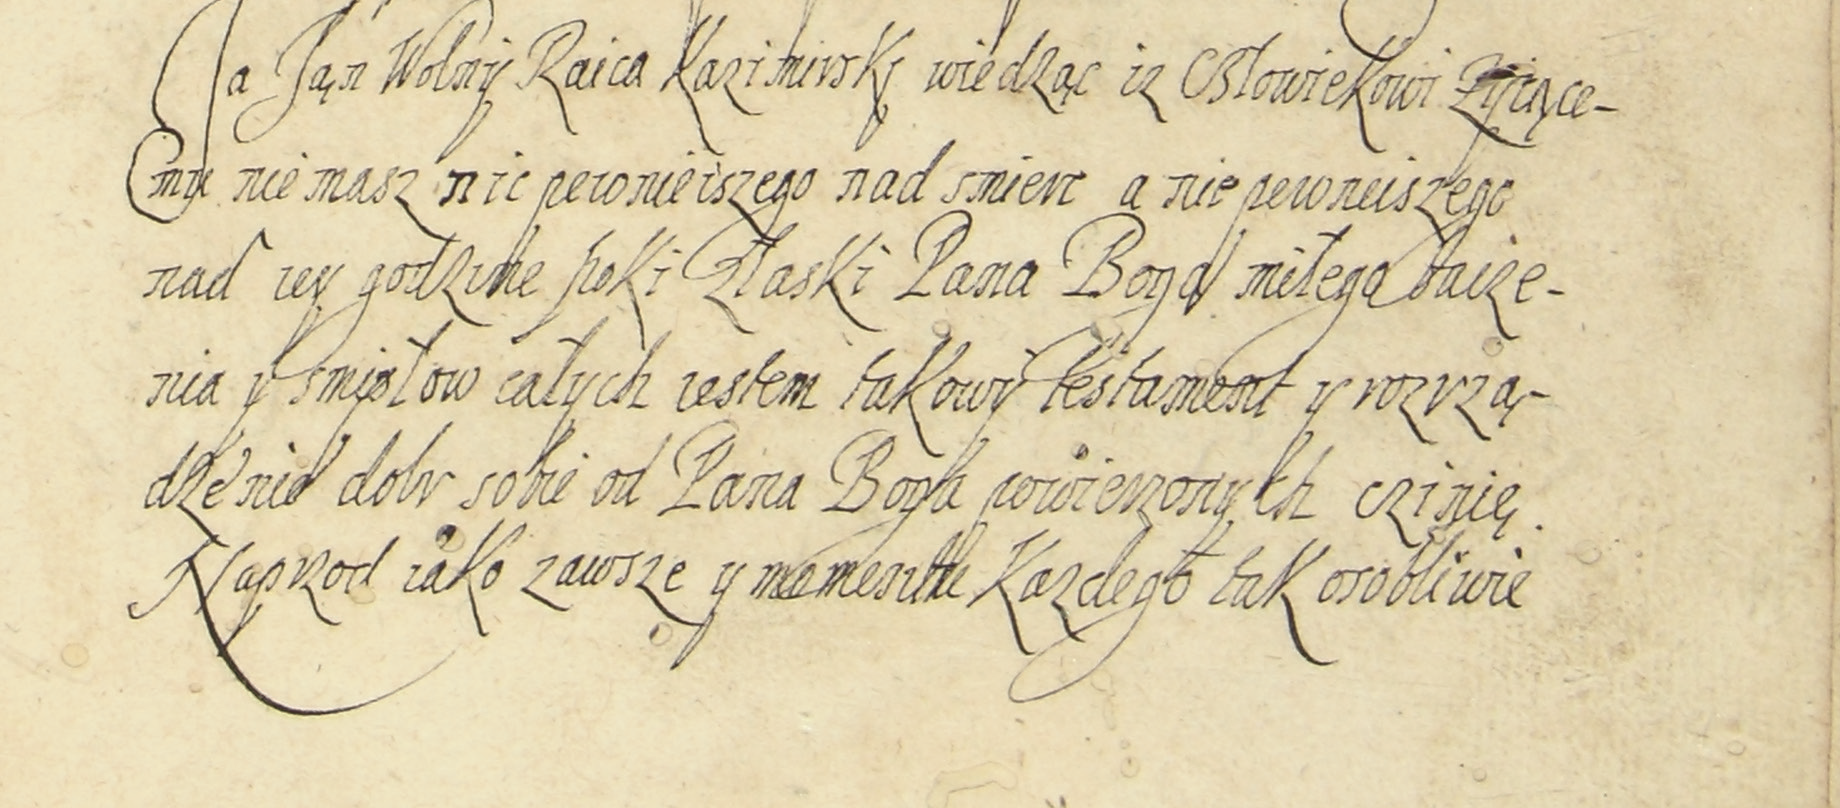 Ja Jąn Wolny Raica Kazimirsky wiedząc iz Człowiekowi Zyiące-
mu nie masz nic pewnieiszego nad smierc a nie pewneiszego
nad iey godzine poki Złaski Pana Boga miłego baize-
nia y smisłow całych iestem takowy testament y rozrzą-
dzenie dobr sobie od Pana Boga powierzonych czinię.
Naprzod iako zawsze y momentu Kazdego tak osobliwie